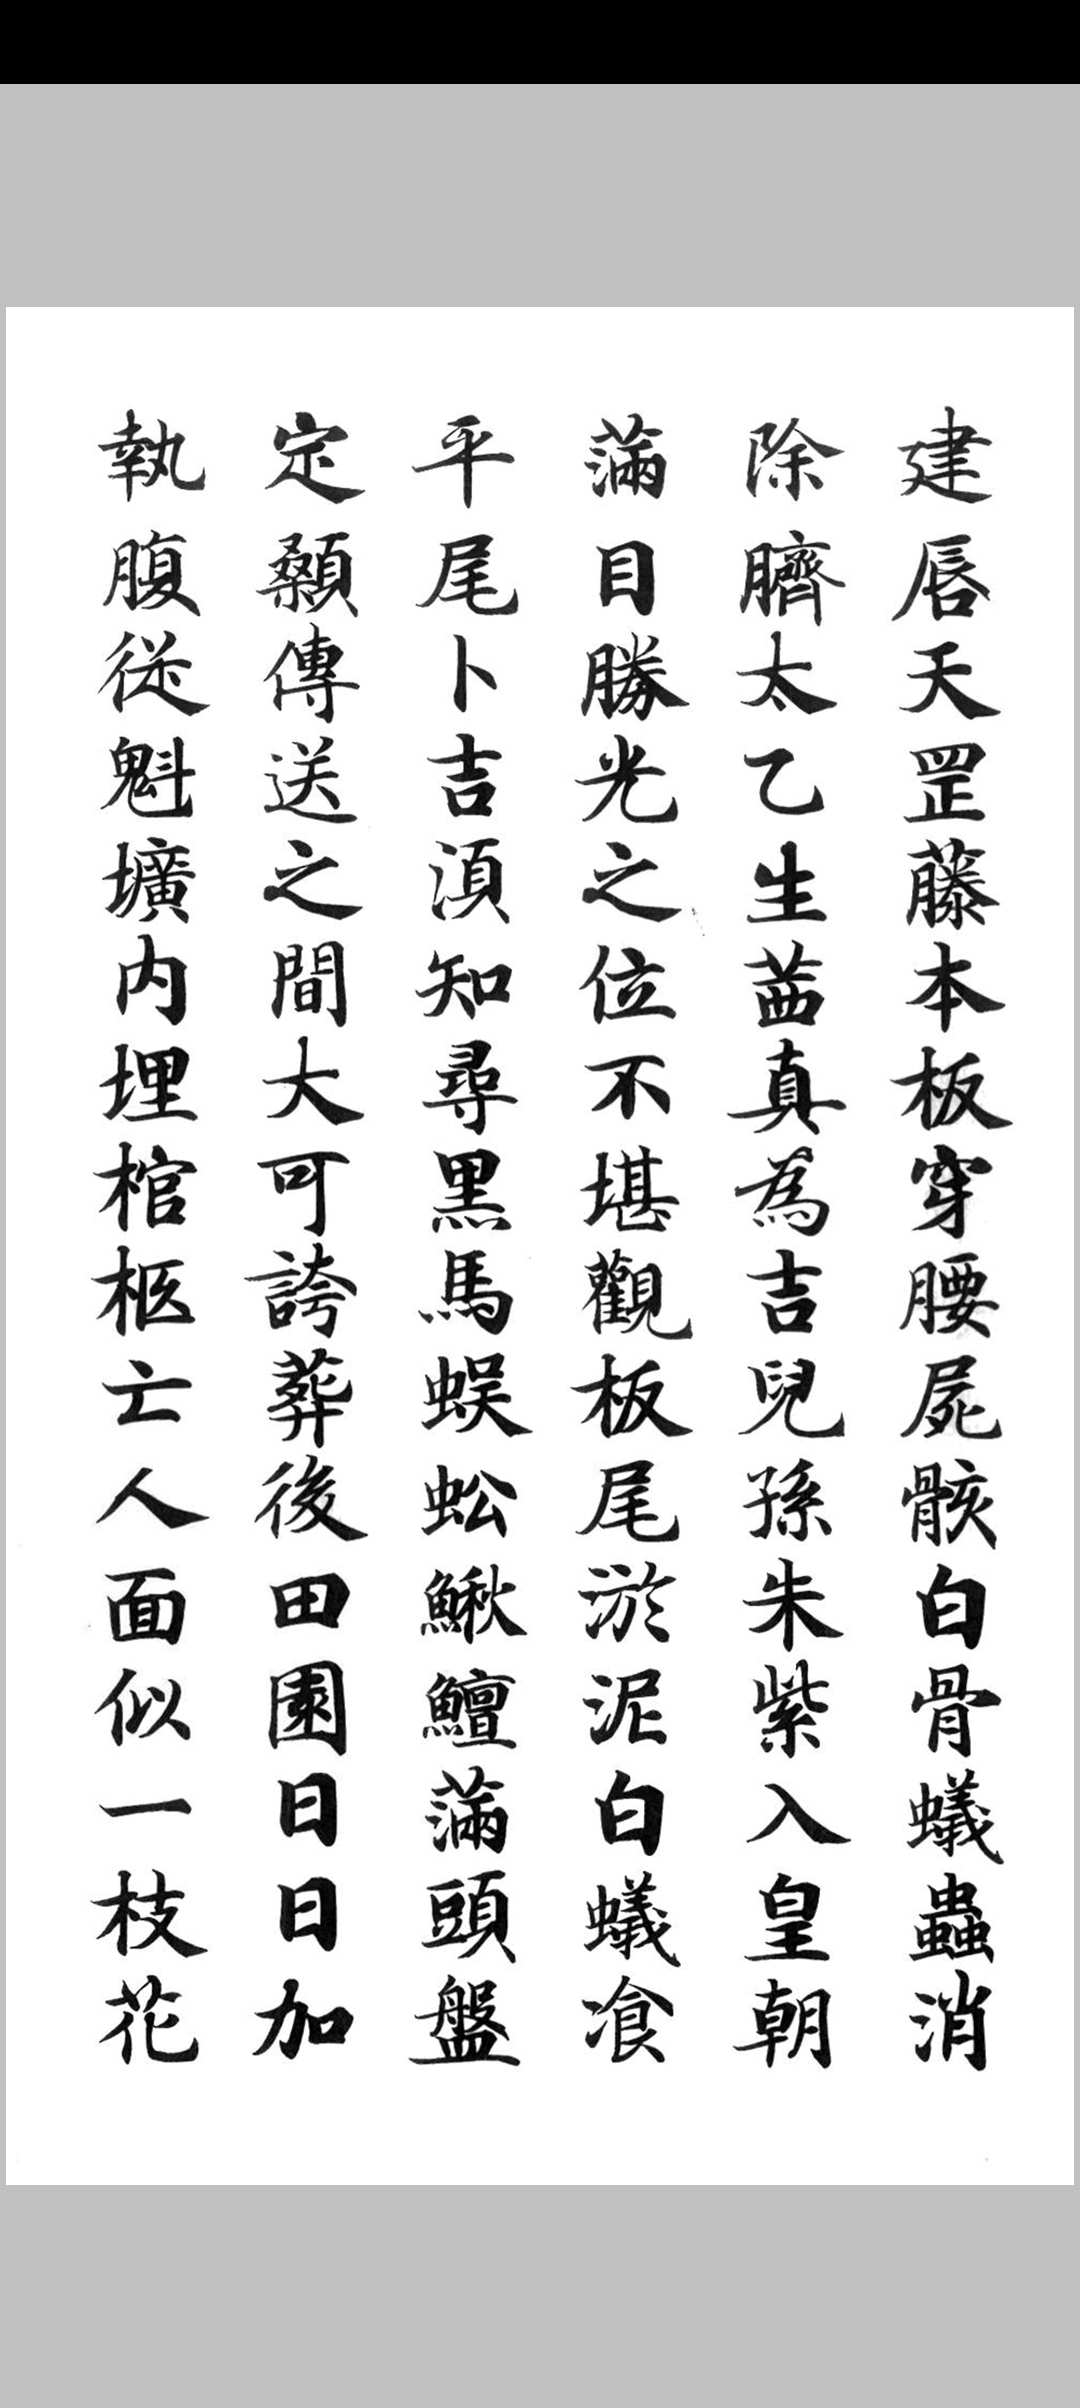 建唇天罡藤本板穿腰屍骸白骨蟻蟲消
除臍太乙生葘真為吉兒孫朱紫入皇朝
滿目勝光之位不堪觀板尾淤泥白蟻飡
平尾卜吉須知尋黑馬蜈蚣鰍鱣滿頭盤
定顙傳送之間大可誇葬後田園日日加
執腹從魁壙內埋棺柩亡人面似一枝花